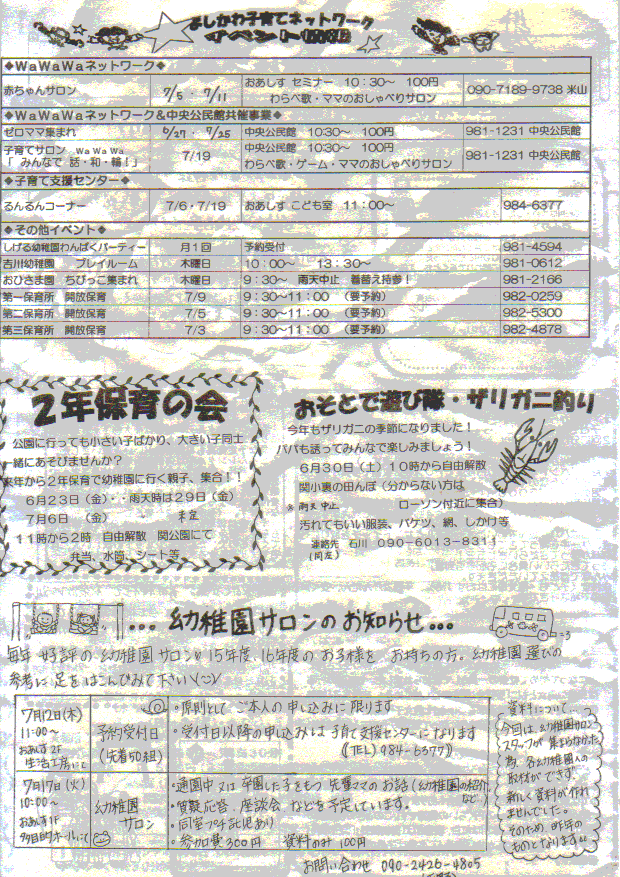 よしかわ子育てネットワーク
◆WaWaWaネットワーク◆
赤ちゃんサロン 7/5・7/11 おあしす セミナー 10:30～ 100円 わらべ歌・ママのおしゃべりサロン 090-7189-9738 米山
◆WaWaWaネットワーク&中央公民館共催事業◆
ゼロママ集まれ 6/27・7/25 中央公民館 10:30～ 100円 981-1231 中央公民館
子育てサロン Wa Wa Wa 「みんなで 話・和・輪!」 7/19 中央公民館 10:30～ 100円 わらべ歌・ゲーム・ママのおしゃべりサロン 981-1231 中央公民館
◆子育て支援センター◆
るんるんコーナー 7/6・7/19 おあしす こども室 11:00～ 984-6377
◆その他イベント◆
しげる幼稚園わんぱくパーティー 月1回 予約受付 981-4594
吉川幼稚園 プレイルーム 木曜日 10:00～ 13:30～ 981-0612
おひさま園 ちびっこ集まれ 木曜日 9:30～ 雨天中止 着替え持参! 981-2166
第一保育所 開放保育 7/9 9:30～11:00 (要予約) 982-0259
第二保育所 開放保育 7/5 9:30～11:00 (要予約) 982-5300
第三保育所 開放保育 7/3 9:30～11:00 (要予約) 982-4878
2年保育の会
公園に行っても小さい子ばかり、大きい子同士
一緒にあそびませんか?
来年から2年保育で幼稚園に行く親子、集合!!
6月23日(金)・・雨天時は29日(金)
7月6日 (金) 〃 未定
11時から2時 自由解散 関公園にて
弁当、水筒、シート等
おそとで遊び隊・ザリガニ釣り
今年もザリガニの季節になりました!
パパも誘ってみんなで楽しみましょう!
6月30日(土)10時から自由解散
関小裏の田んぼ(分からない方は
※雨天中止 ローソン付近に集合)
汚れてもいい服装、バケツ、網、しかけ等
連絡先 石川 090-6013-8311
...幼稚園サロンのお知らせ...
毎年 好評の 幼稚園サロン♡ 15年度、16年度の お子様を お持ちの方。幼稚園選びの
参考に 足をはこんでみて下さい
7月12日(木)
11:00～
おあしす 2F
生活工房にて
予約受付日
(先着50組)
・原則として ご本人の申し込みに限ります
・受付日以降の申し込みは 子育て支援センターになります
(TEL)984-6377
7月17日(火)
10:00～
おあしす1F
多目的ホールにて
幼稚園
サロン
・通園中又は 卒園した子をもつ 先輩ママのお話(幼稚園の紹介など)
・質疑応答、座談会 などを予定しています。
・同室プチ託児あり
・参加費300円 資料のみ 100円
資料について...
今回は、幼稚園サロン
スタッフが 集まらなかった
為、各幼稚園への
取材ができず、
新しく資料が作れ
ませんでした。
そのため 昨年の
ものとなります
お問い合わせ 090-2426-4805